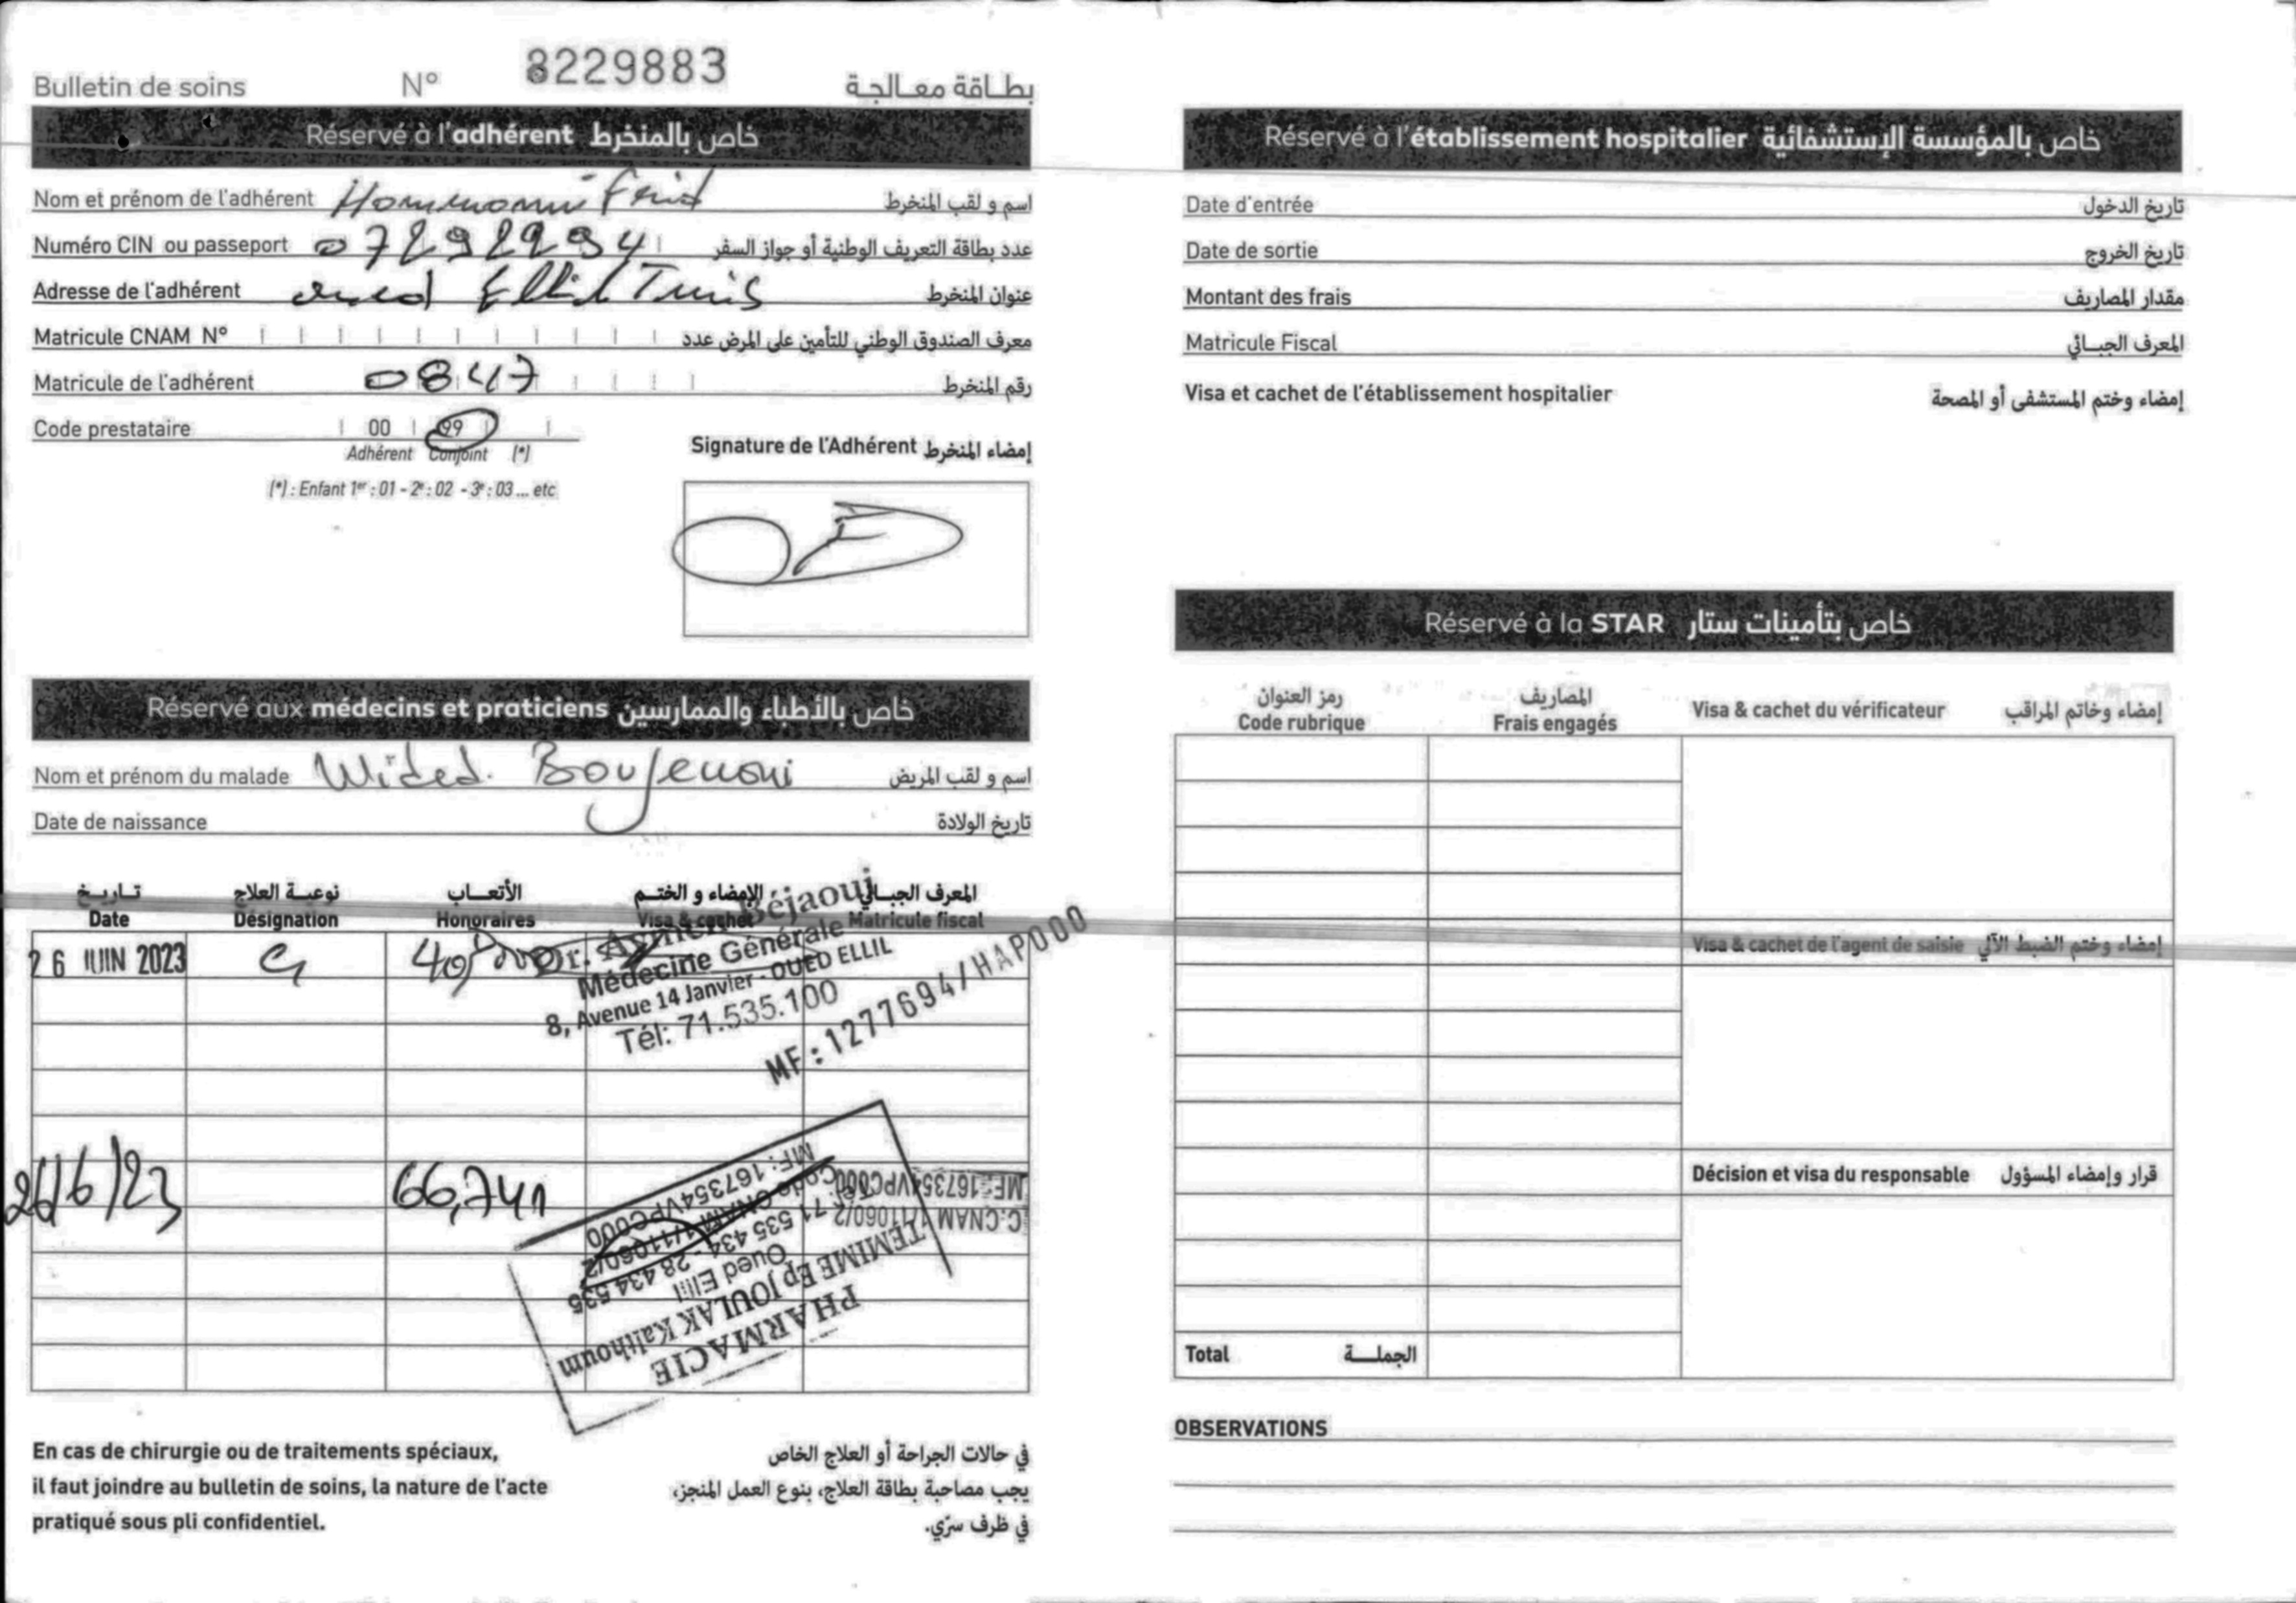 Bulletin de soins N° 8229883 بطاقة معالجة
Réservé à l'adhérent خاص بالمنخرط
Nom et prénom de l'adhérent Hammami Ferid اسم و لقب المنخرط
Numéro CIN ou passeport 07292294 عدد بطاقة التعريف الوطنية أو جواز السفر
Adresse de l'adhérent oued Ellil Tunis عنوان المنخرط
Matricule CNAM N° معرف الصندوق الوطني للتأمين على المرض عدد
Matricule de l'adhérent 0847 رقم المنخرط
Code prestataire 00 99
Adhérent Conjoint (*)
(*) : Enfant 1er : 01 - 2e : 02 - 3e : 03 ... etc
Signature de l'Adhérent إمضاء المنخرط
Réservé aux médecins et praticiens خاص بالأطباء والممارسين
Nom et prénom du malade Wided Boujenoui اسم و لقب المريض
Date de naissance تاريخ الولادة
تاريخ نوعية العلاج الأتعاب الإمضاء و الختم المعرف الجبائي
Date Désignation Honoraires Visa & cachet Matricule fiscal
26 JUIN 2023
Dr. Aymen Béjaoui
Médecine Générale
8, Avenue 14 Janvier - OUED ELLIL
Tél: 71.535.100
MF : 1277694/HAP000
26/6/23 66,741
PHARMACIE
TEMIME Ep JOULAK Kalthoum
Oued Ellil
Tél: 71 535 434 - 28 434 535
Code CNAM 1/11060/2
MF: 167354VPC000
C.CNAM 1/11060/2
MF: 167354VPC000
En cas de chirurgie ou de traitements spéciaux,
il faut joindre au bulletin de soins, la nature de l'acte
pratiqué sous pli confidentiel.
في حالات الجراحة أو العلاج الخاص
يجب مصاحبة بطاقة العلاج، بنوع العمل المنجز،
في ظرف سرّي.
Réservé à l'établissement hospitalier خاص بالمؤسسة الإستشفائية
Date d'entrée تاريخ الدخول
Date de sortie تاريخ الخروج
Montant des frais مقدار المصاريف
Matricule Fiscal المعرف الجبائي
Visa et cachet de l'établissement hospitalier إمضاء وختم المستشفى أو المصحة
Réservé à la STAR خاص بتأمينات ستار
رمز العنوان المصاريف
Code rubrique Frais engagés Visa & cachet du vérificateur إمضاء وخاتم المراقب
Visa & cachet de l'agent de saisie إمضاء وختم الضبط الآلي
Décision et visa du responsable قرار وإمضاء المسؤول
Total الجملة
OBSERVATIONS